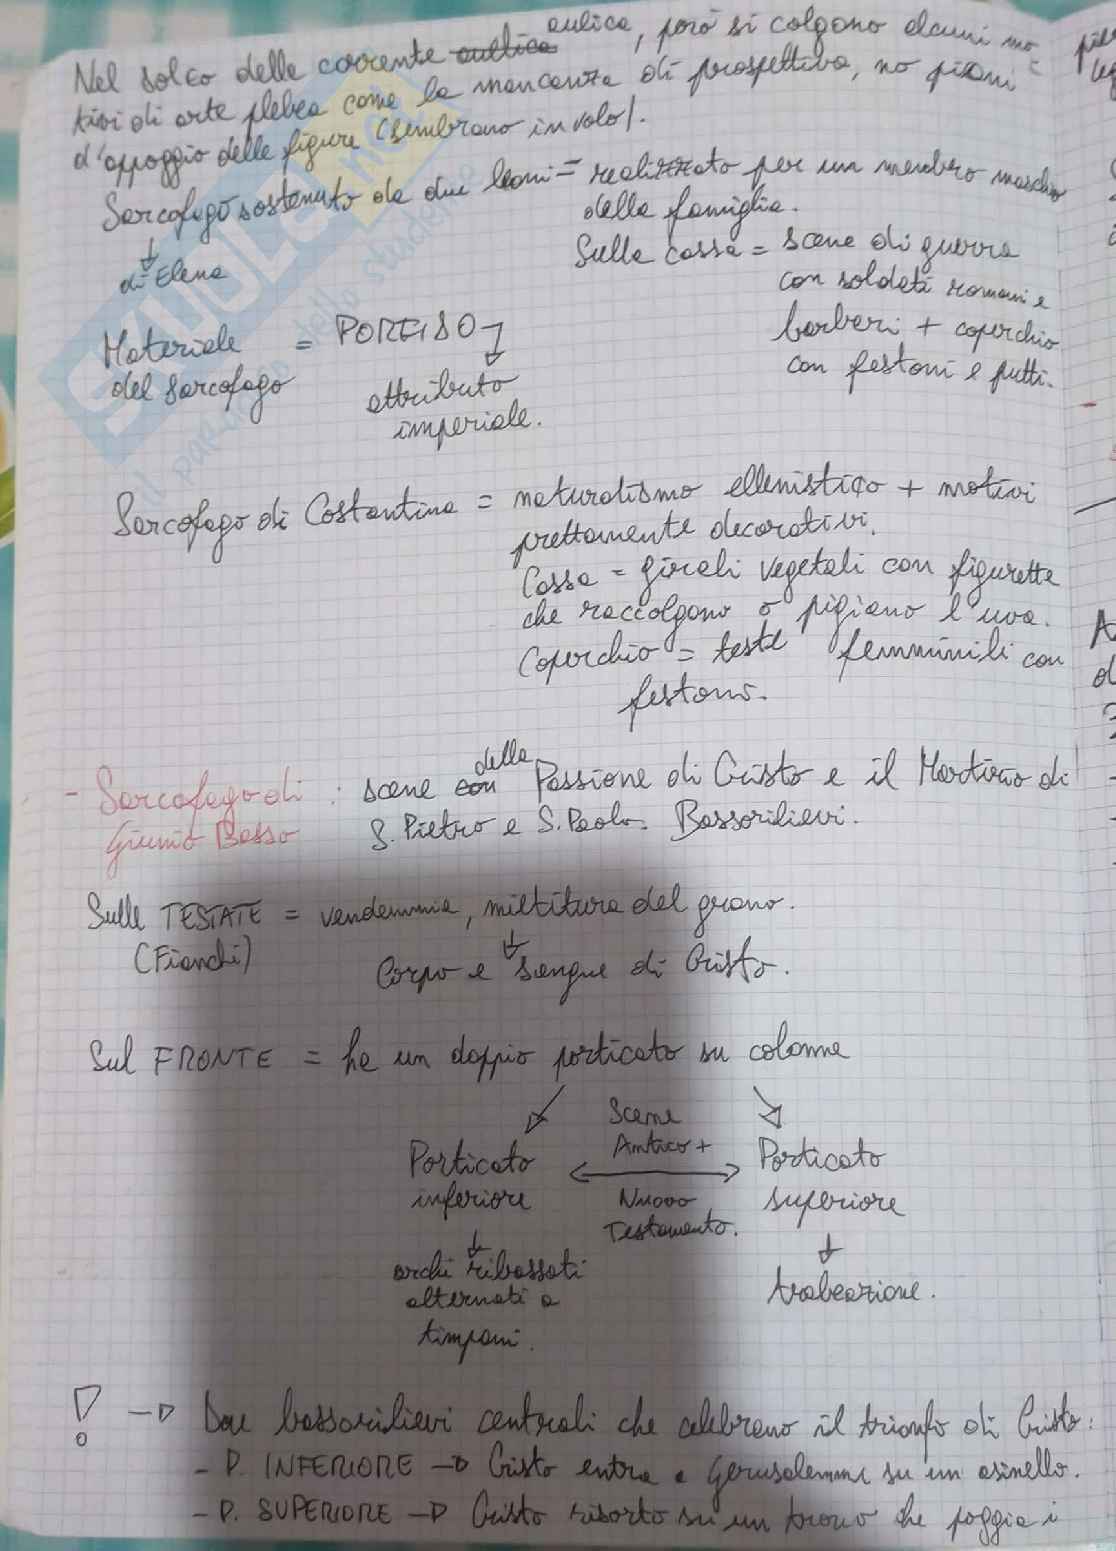 Nel solco della corrente aulica, però si colgono alcuni mo
tivi di arte plebea come la mancanza di prospettiva, no piani
d'appoggio delle figure (sembrano in volo).
Sarcofago sostenuto da due leoni = realizzato per un membro maschio
della famiglia.
↓
di Elena
Sulla cassa = scene di guerra
con soldati romani e
barbari + coperchio
con festoni e putti.
Materiale
del sarcofago
= PORFIDO
attributo
imperiale.
Sarcofago di Costantina = naturalismo ellenistico + motivi
prettamente decorativi.
Cassa = girali vegetali con figurette
che raccolgono o pigiano l'uva.
Coperchio = teste femminili con
festoni.
- Sarcofago di
Giunio Basso
: scene della Passione di Cristo e il Martirio di
S. Pietro e S. Paolo. Bassorilievi.
Sulle TESTATE = vendemmia, mietitura del grano.
(Fianchi)
↓
Corpo e sangue di Cristo.
Sul FRONTE = ha un doppio porticato su colonne
Porticato
inferiore
↓
archi ribassati
alternati a
timpani.
Scene
Antico +
Nuovo
Testamento.
Porticato
superiore
↓
trabeazione.
! → Due bassorilievi centrali che celebrano il trionfo di Cristo:
- P. INFERIORE → Cristo entra a Gerusalemme su un asinello.
- P. SUPERIORE → Cristo risorto su un trono che poggia i
SKUOLA.net
il paradiso dello studente